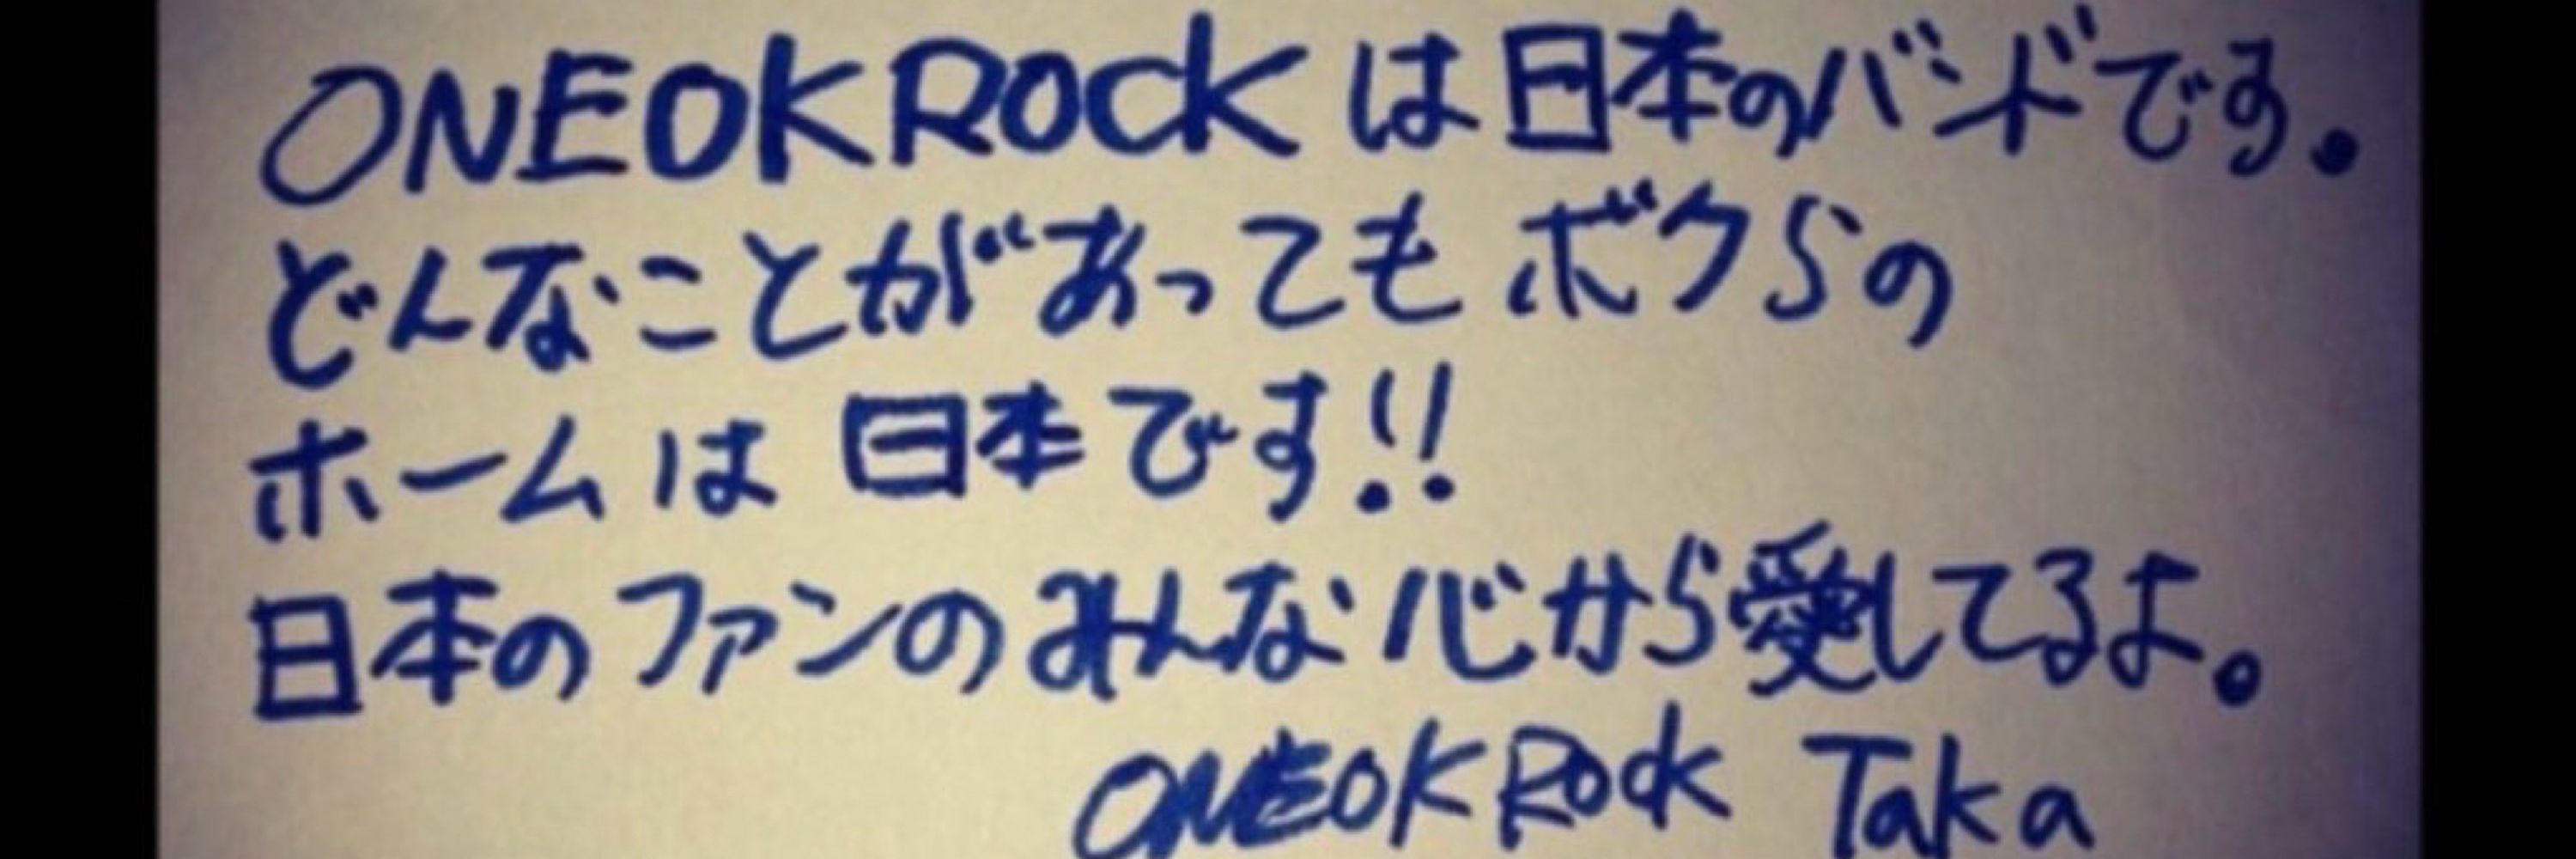 ONE OK ROCK は日本のバンドです。
どんなことがあっても ボクらの
ホームは 日本です!!
日本のファンのみんな心から愛してるよ。
ONE OK ROCK Taka